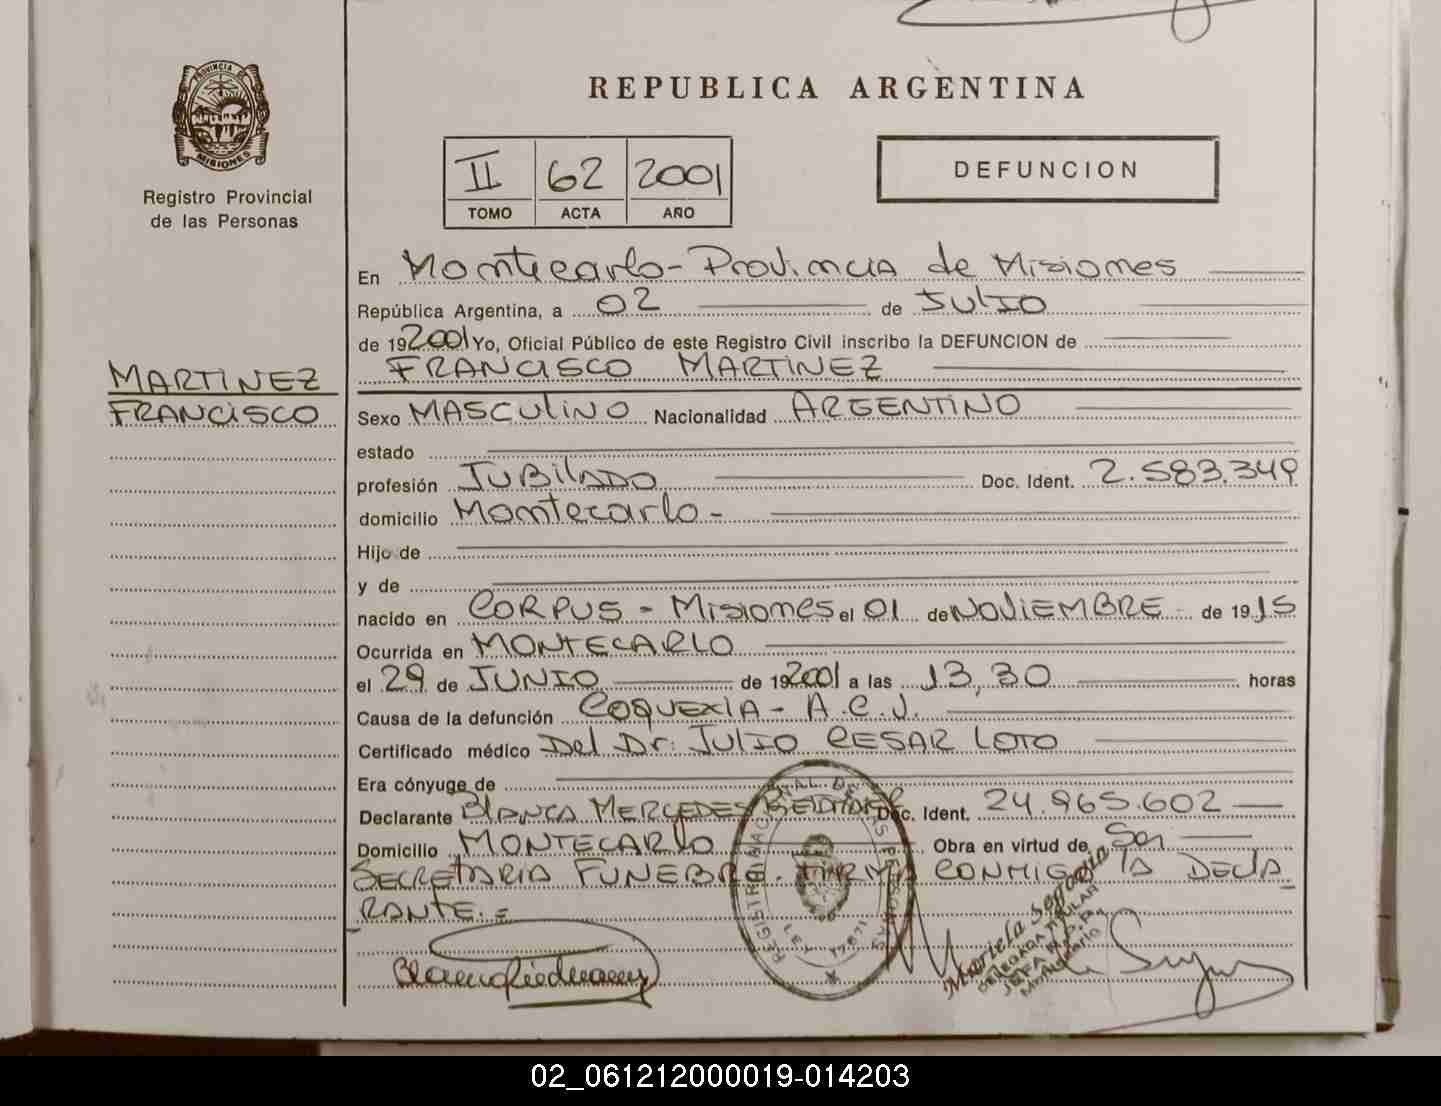 REPUBLICA ARGENTINA
PROVINCIA DE
MISIONES
Registro Provincial
de las Personas
II 62 2001
TOMO ACTA AÑO
DEFUNCION
En Montecarlo - Provincia de Misiones
República Argentina, a 02 de Julio
de 192001 Yo, Oficial Público de este Registro Civil inscribo la DEFUNCION de
FRANCISCO MARTINEZ
MARTINEZ
FRANCISCO
Sexo MASCULINO Nacionalidad ARGENTINO
estado
profesión JUBILADO Doc. Ident. 2.583.349
domicilio Montecarlo -
Hijo de
y de
nacido en CORPUS - Misiones el 01 de NOVIEMBRE de 1915
Ocurrida en MONTECARLO
el 29 de JUNIO de 192001 a las 13,30 horas
Causa de la defunción COQUEXIA - A.C.V.
Certificado médico Del Dr: JULIO CESAR LOTO
Era cónyuge de
Declarante BLANCA MERCEDES Doc. Ident. 24.965.602
Domicilio MONTECARLO Obra en virtud de Ser
SECRETARIA FUNEBRE. FIRMA CONMIGO LA DECLA
RANTE.=
REGISTRO NACIONAL DE LAS PERSONAS
LEY 17.671
Mariela Segovia
DELEGADA TITULAR
02_061212000019-014203